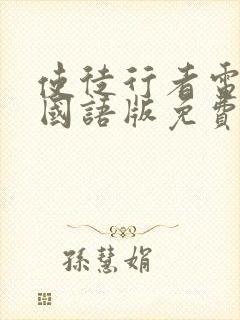 使徒行者雷
國語版免費
孫慧娟